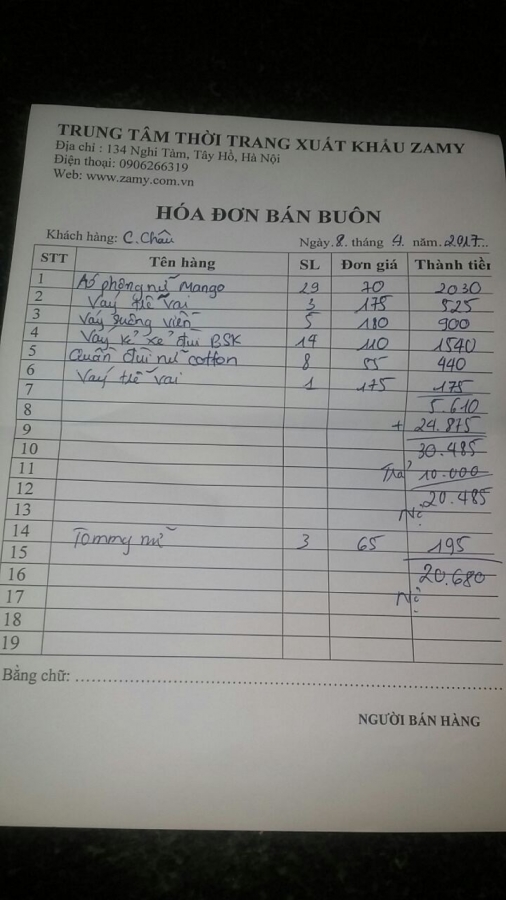 TRUNG TÂM THỜI TRANG XUẤT KHẨU ZAMY
Địa chỉ : 134 Nghi Tàm, Tây Hồ, Hà Nội
Điện thoại: 0906266319
Web: www.zamy.com.vn
HÓA ĐƠN BÁN BUÔN
Khách hàng: C. Châu Ngày. 8. tháng 4. năm. 2017...
STT Tên hàng SL Đơn giá Thành tiền
1 Áo phông nữ Mango 29 70 2030
2 Váy trễ vai 3 175 525
3 Váy suông viền 5 180 900
4 Váy kẻ xẻ đùi BSK 14 110 1540
5 Quần đùi nữ cotton 8 55 440
6 Váy trễ vai 1 175 175
7 5.610
8 + 24.875
9 30.485
10 Trả 10.000
11 20.485
12 Nợ
13
14 Tommy nữ 3 65 195
15 20.680
16 Nợ
17
18
19
Bằng chữ: ........................................................
NGƯỜI BÁN HÀNG